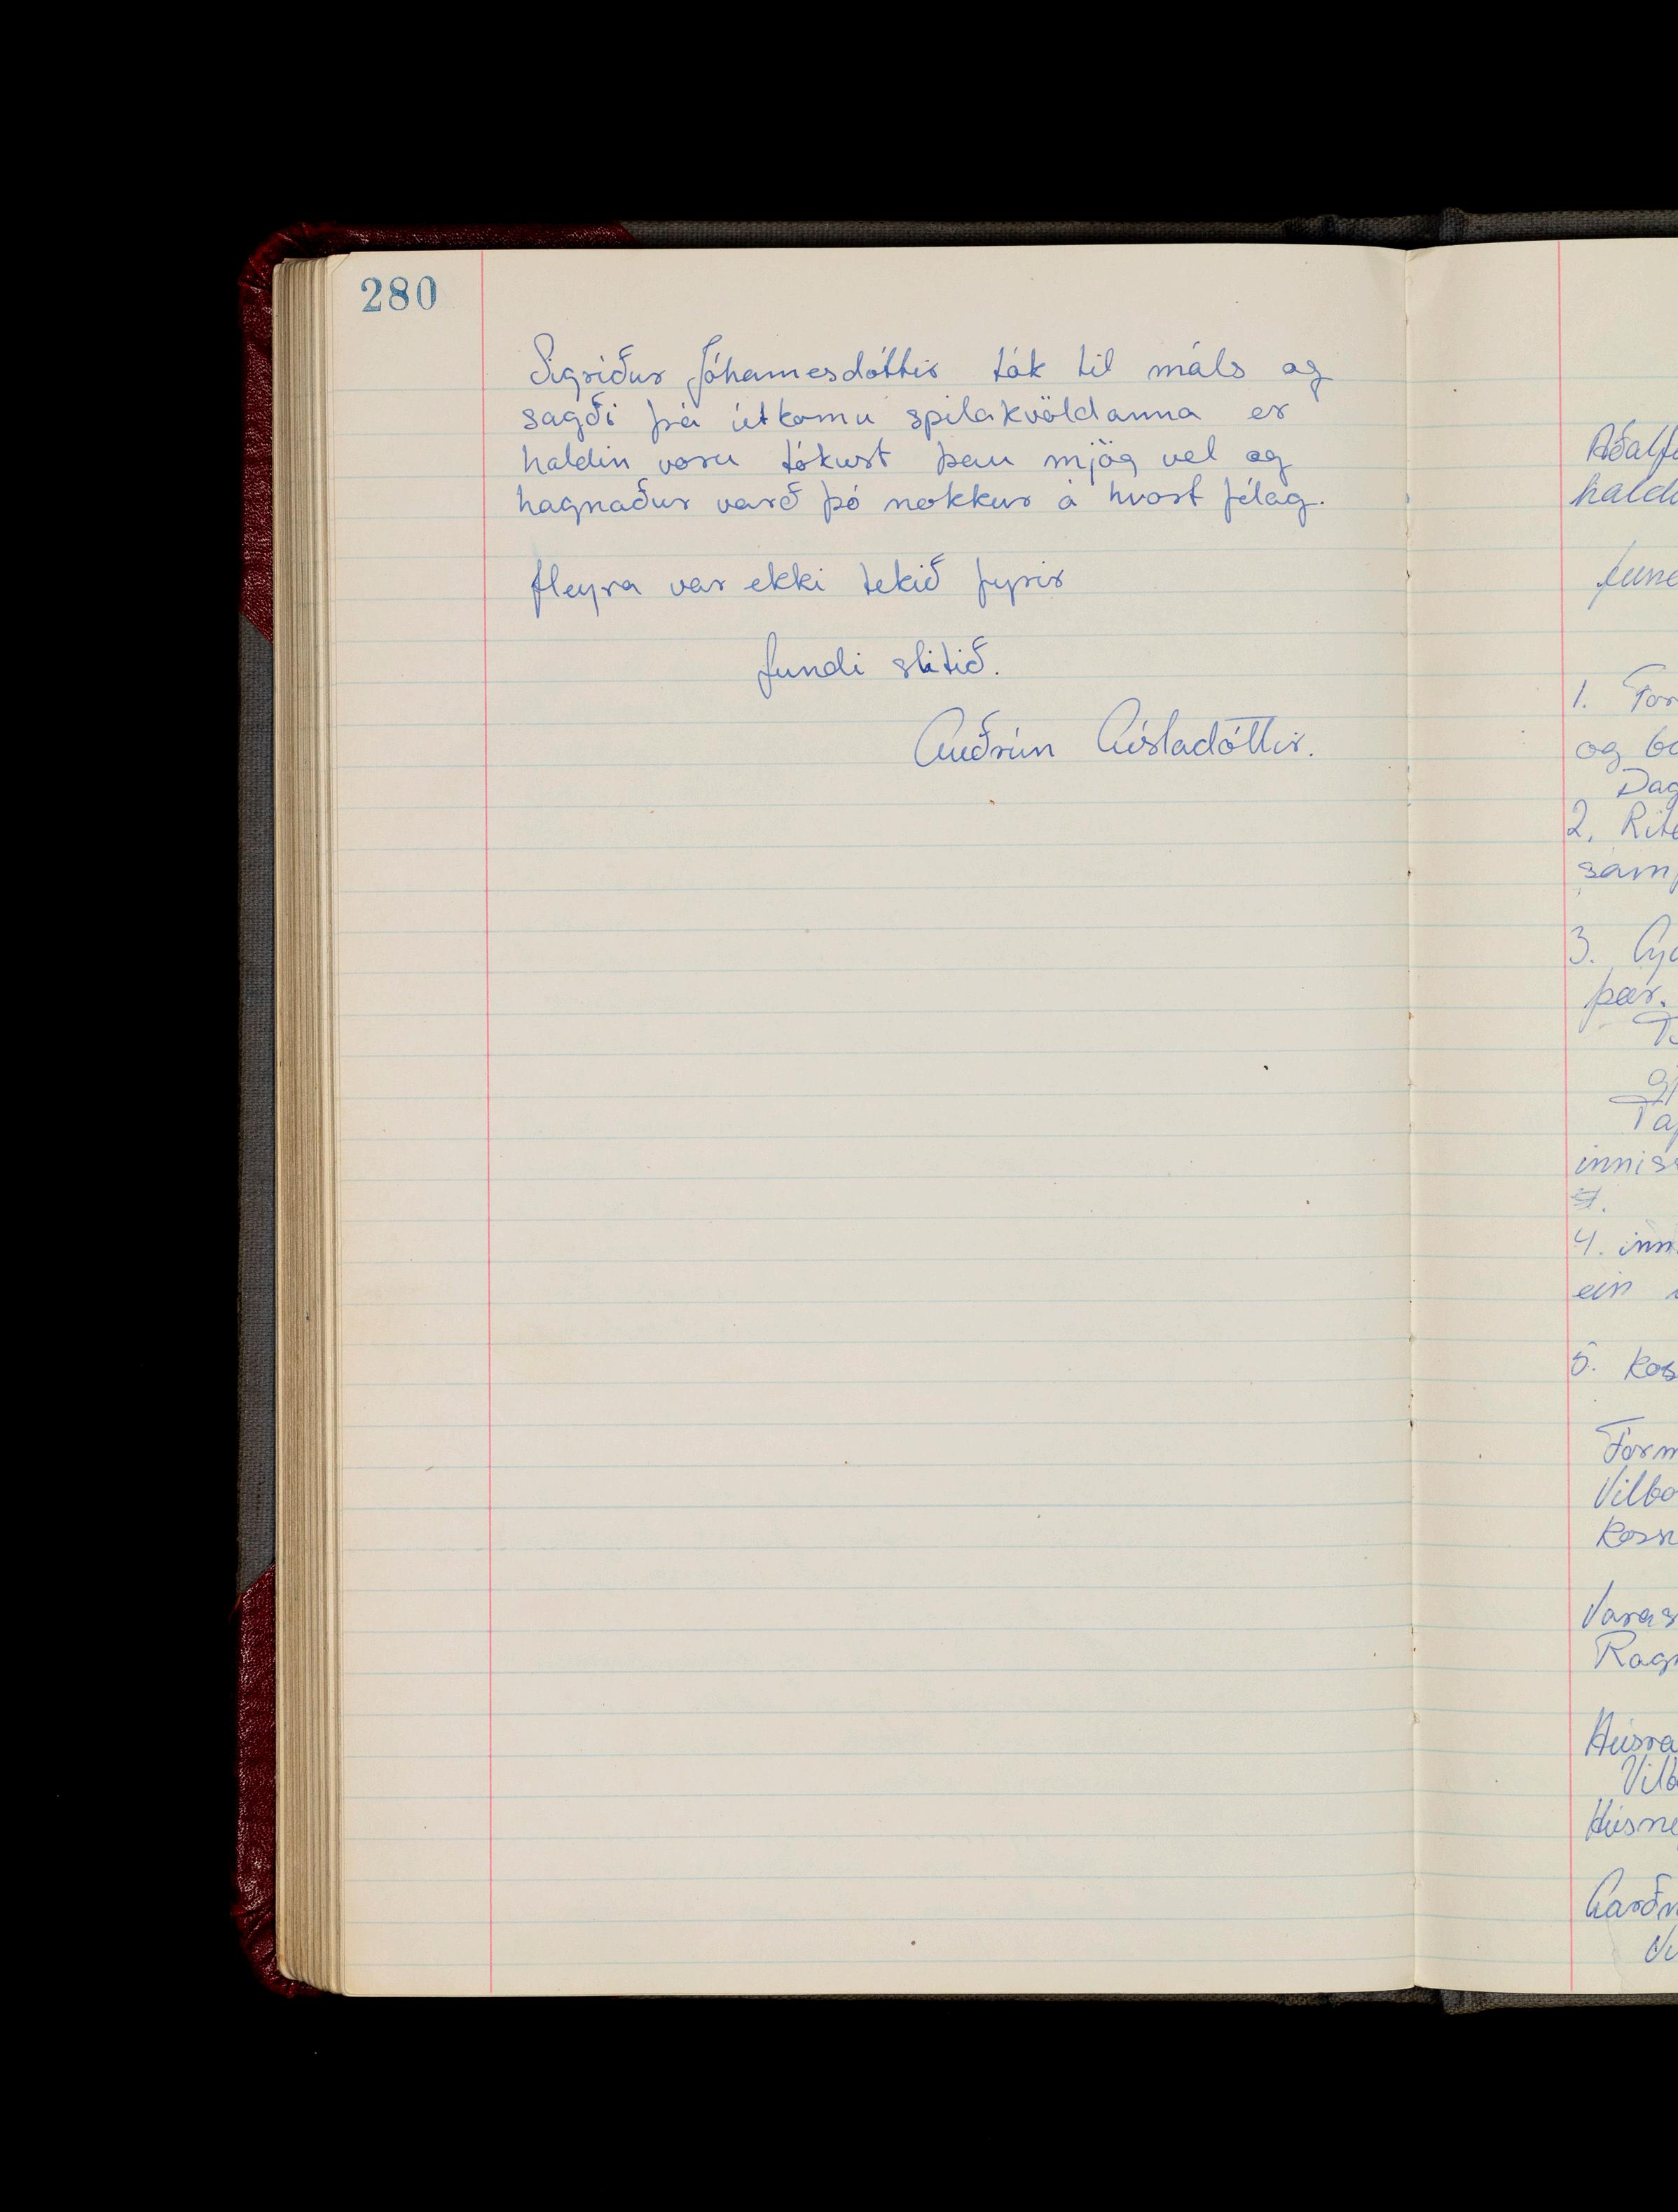 280
Sigríður Jóhannesdóttir tók til máls og
sagði frá útkomu spilakvöldanna er
haldin voru tókust þau mjög vel og
hagnaður varð þó nokkur á hvort félag.
fleyra var ekki tekið fyrir
fundi slitið.
Guðrún Gísladóttir.
Aðalfu
haldi
1. For
og bo
Dag
2. Rit
3. Gja
þær.
Ta
innis
4. inn
ein
5. kos
Form
Vilbo
Kosn
Varas
Ragn
Húsra
Vilb
Húsne
Garðn